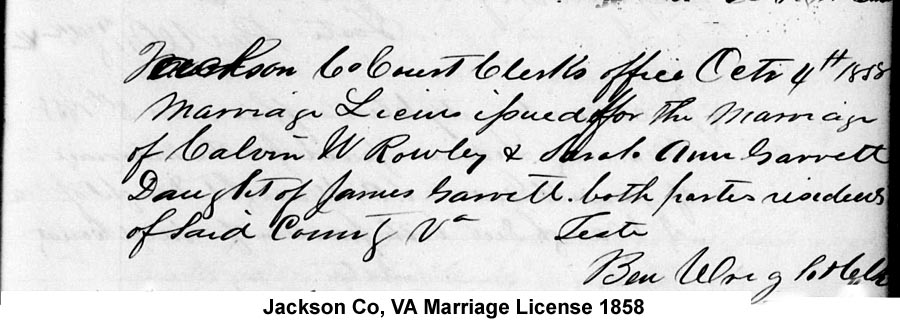 Jackson Co Court Clerks office Octr 4th 1858
Marriage Licens issued for the Marriage
of Calvin W Rowley & Sarah Ann Garrett
Daught of James Garrett. both partes residents
of Said County Va Teste
Ben Wright Clk
Jackson Co, VA Marriage License 1858